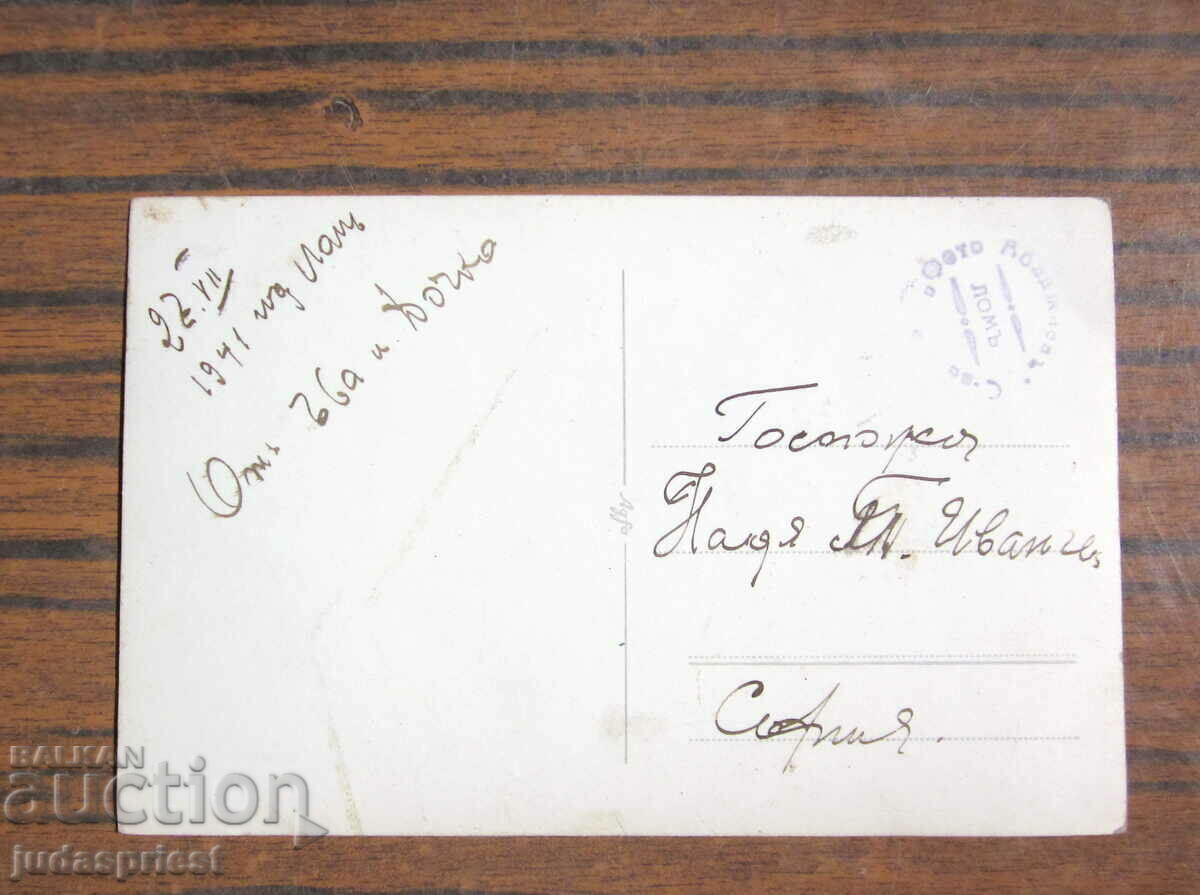 27.VII
1941 год Ломъ
Отъ Ева и Дочка
Фото
ЛОМЪ
Госпожа
Надя Т. Иванчев
София.
BALKAN
auction
judaspriest